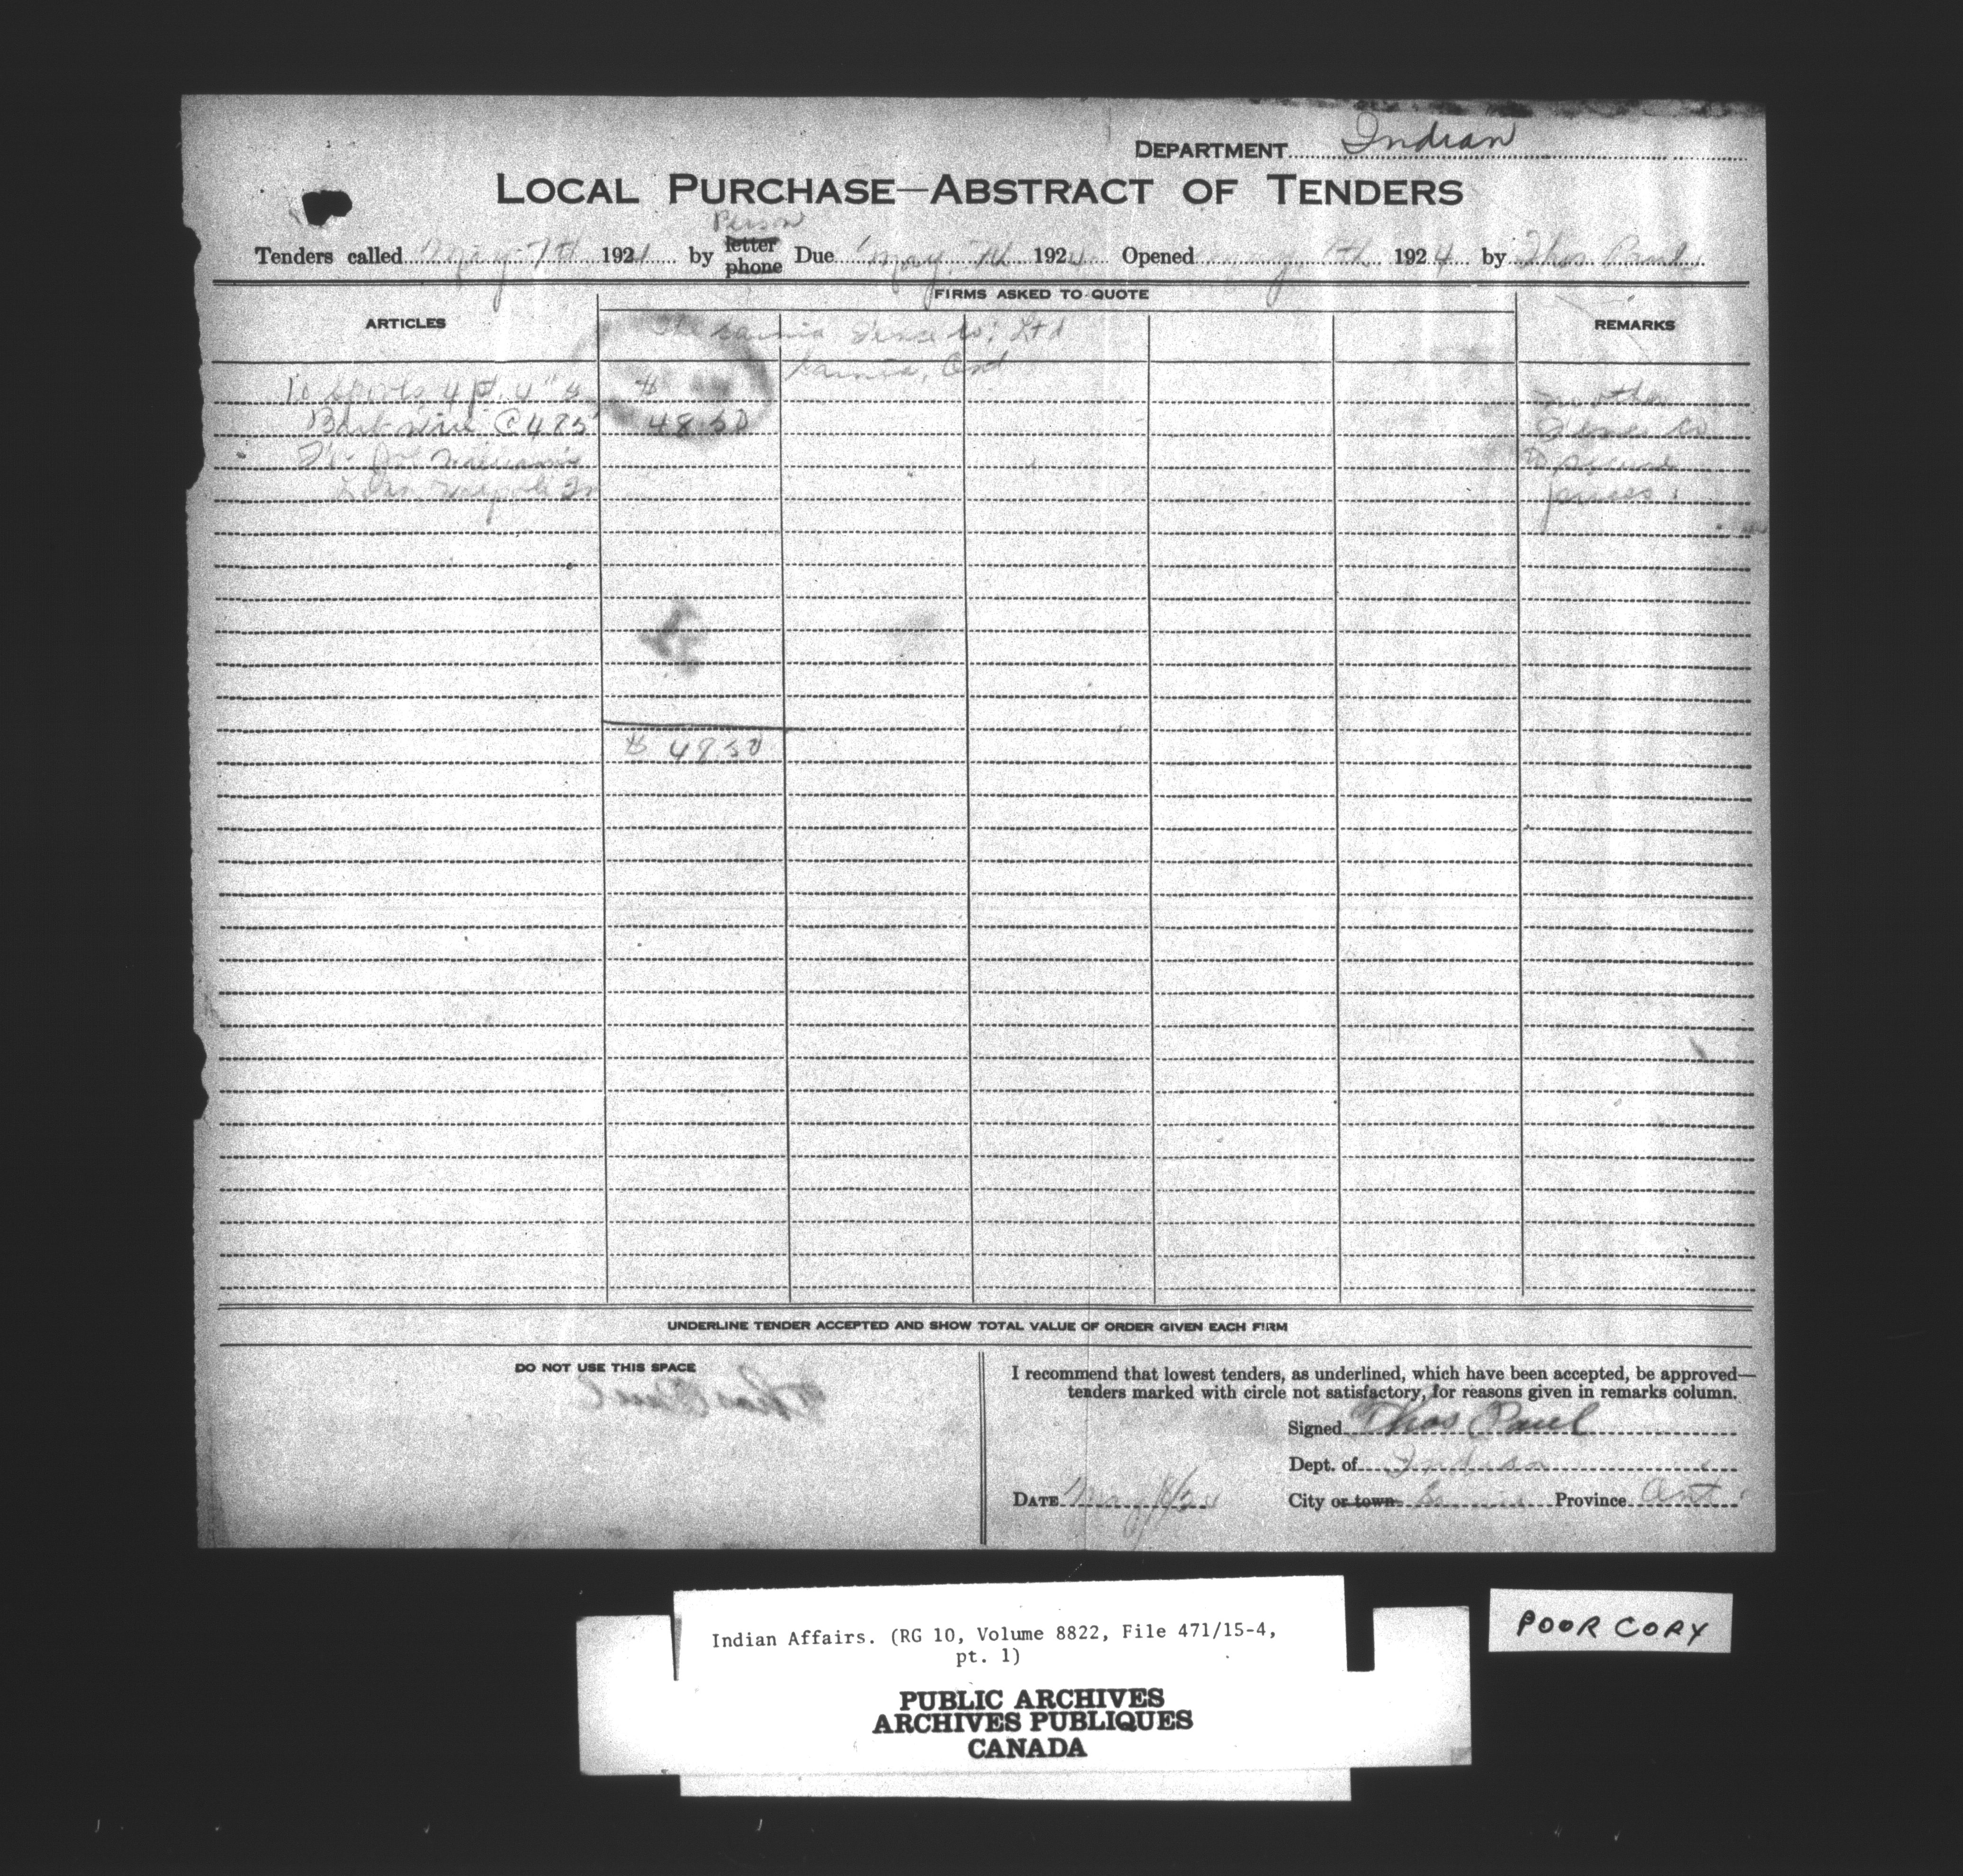 DEPARTMENT Indian
LOCAL PURCHASE—ABSTRACT OF TENDERS
Person
Tenders called May 7th 1924 by letter phone Due May 7th 1924 Opened May 7th 1924 by Thos Paul
FIRMS ASKED TO QUOTE
ARTICLES
REMARKS
The Sarnia Fence Co. Ltd
Sarnia, Ont
10 Spools 4 pt. 4"
$
no other
Barb wire @ 485
48.50
Fence Co
Williams
to secure
prices.
$ 48.50
UNDERLINE TENDER ACCEPTED AND SHOW TOTAL VALUE OF ORDER GIVEN EACH FIRM
DO NOT USE THIS SPACE
I recommend that lowest tenders, as underlined, which have been accepted, be approved—
tenders marked with circle not satisfactory, for reasons given in remarks column.
Signed Thos Paul
Dept. of Indian
DATE May 8/24 City or town Sarnia Province Ont.
Indian Affairs. (RG 10, Volume 8822, File 471/15-4,
pt. 1)
POOR COPY
PUBLIC ARCHIVES
ARCHIVES PUBLIQUES
CANADA